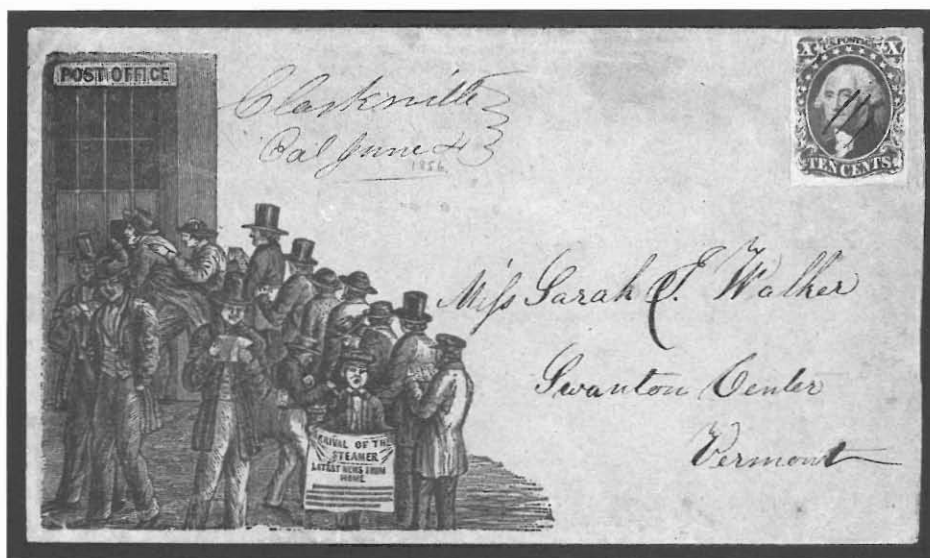 POST OFFICE
Clarksville
Cal June 4
1856
X U.S. POSTAGE X
TEN CENTS
Miss Sarah J. Walker
Swanton Center
Vermont
ARRIVAL OF THE
STEAMER
LATEST NEWS FROM
HOME